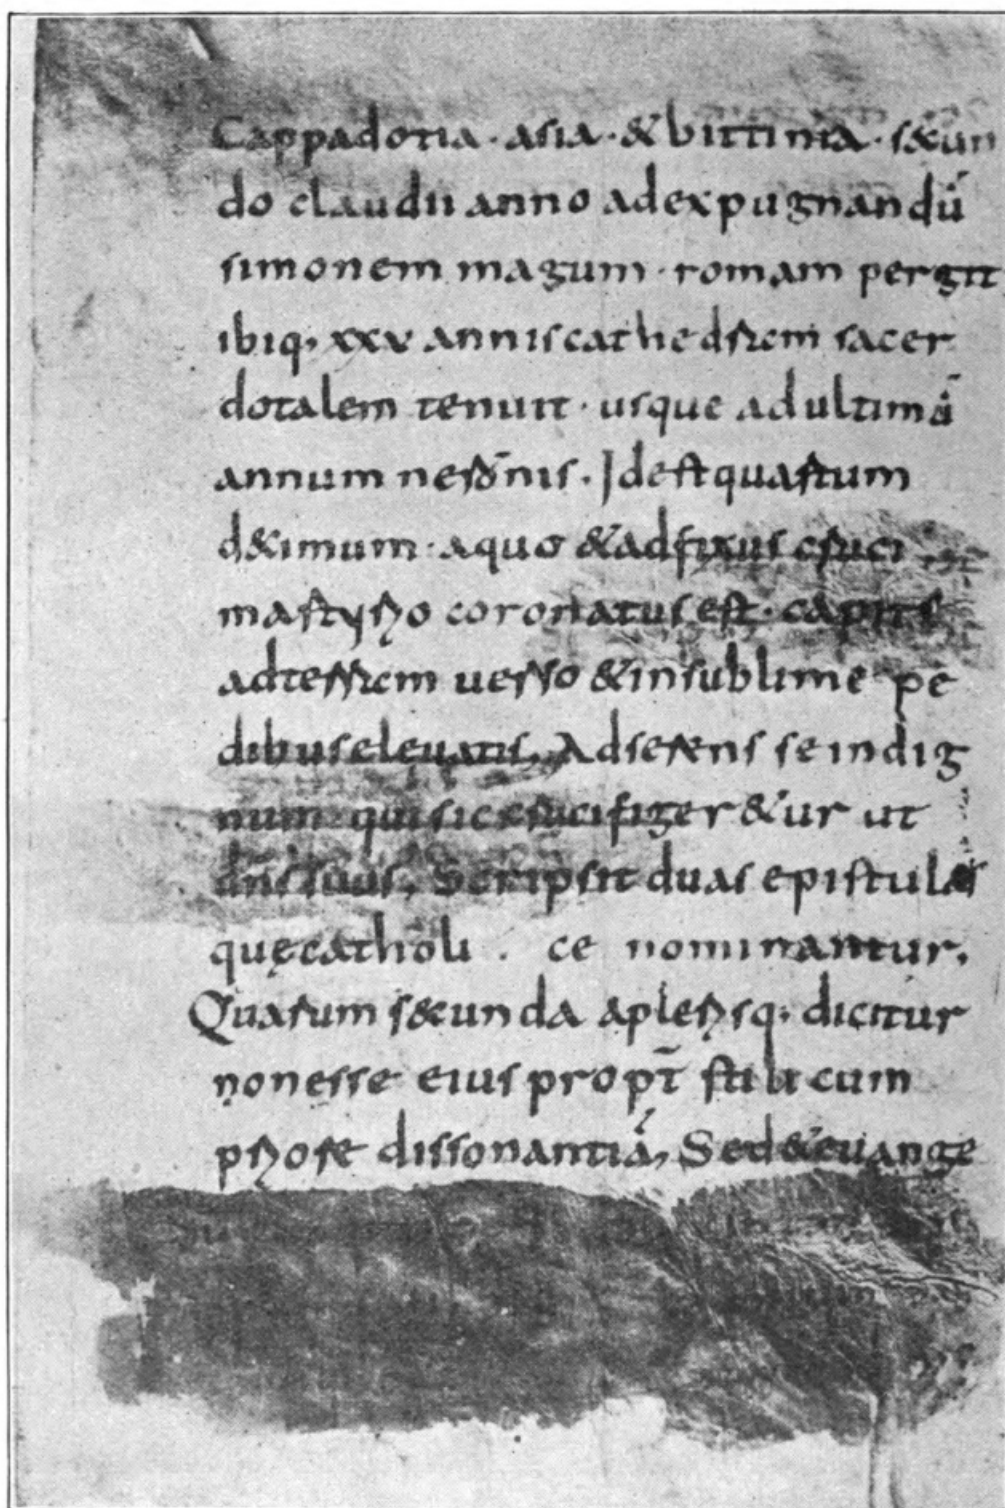 Cappadotia · asia · & bittinia · s&cun
do claudii anno ad expugnandū
simonem magum · romam pergit
ibiq, xxv annis cathedram sacer
dotalem tenuit · usque ad ultimā
annum neronis. Id est quartum
d&imum · a quo & adfixus cruci
martyrio coronatus est · capite
ad terram verso & in sublime pe
dibus elevatis. Adserens se indig
num qui sic crucifiger&ur ut
dn̄s suus. Scripsit duas epistulas
quę catholi . ce nominantur.
Quarum s&cunda a plerisq, dicitur
non esse eius propt̄ stili cum
priore dissonantiā, Sed & evange